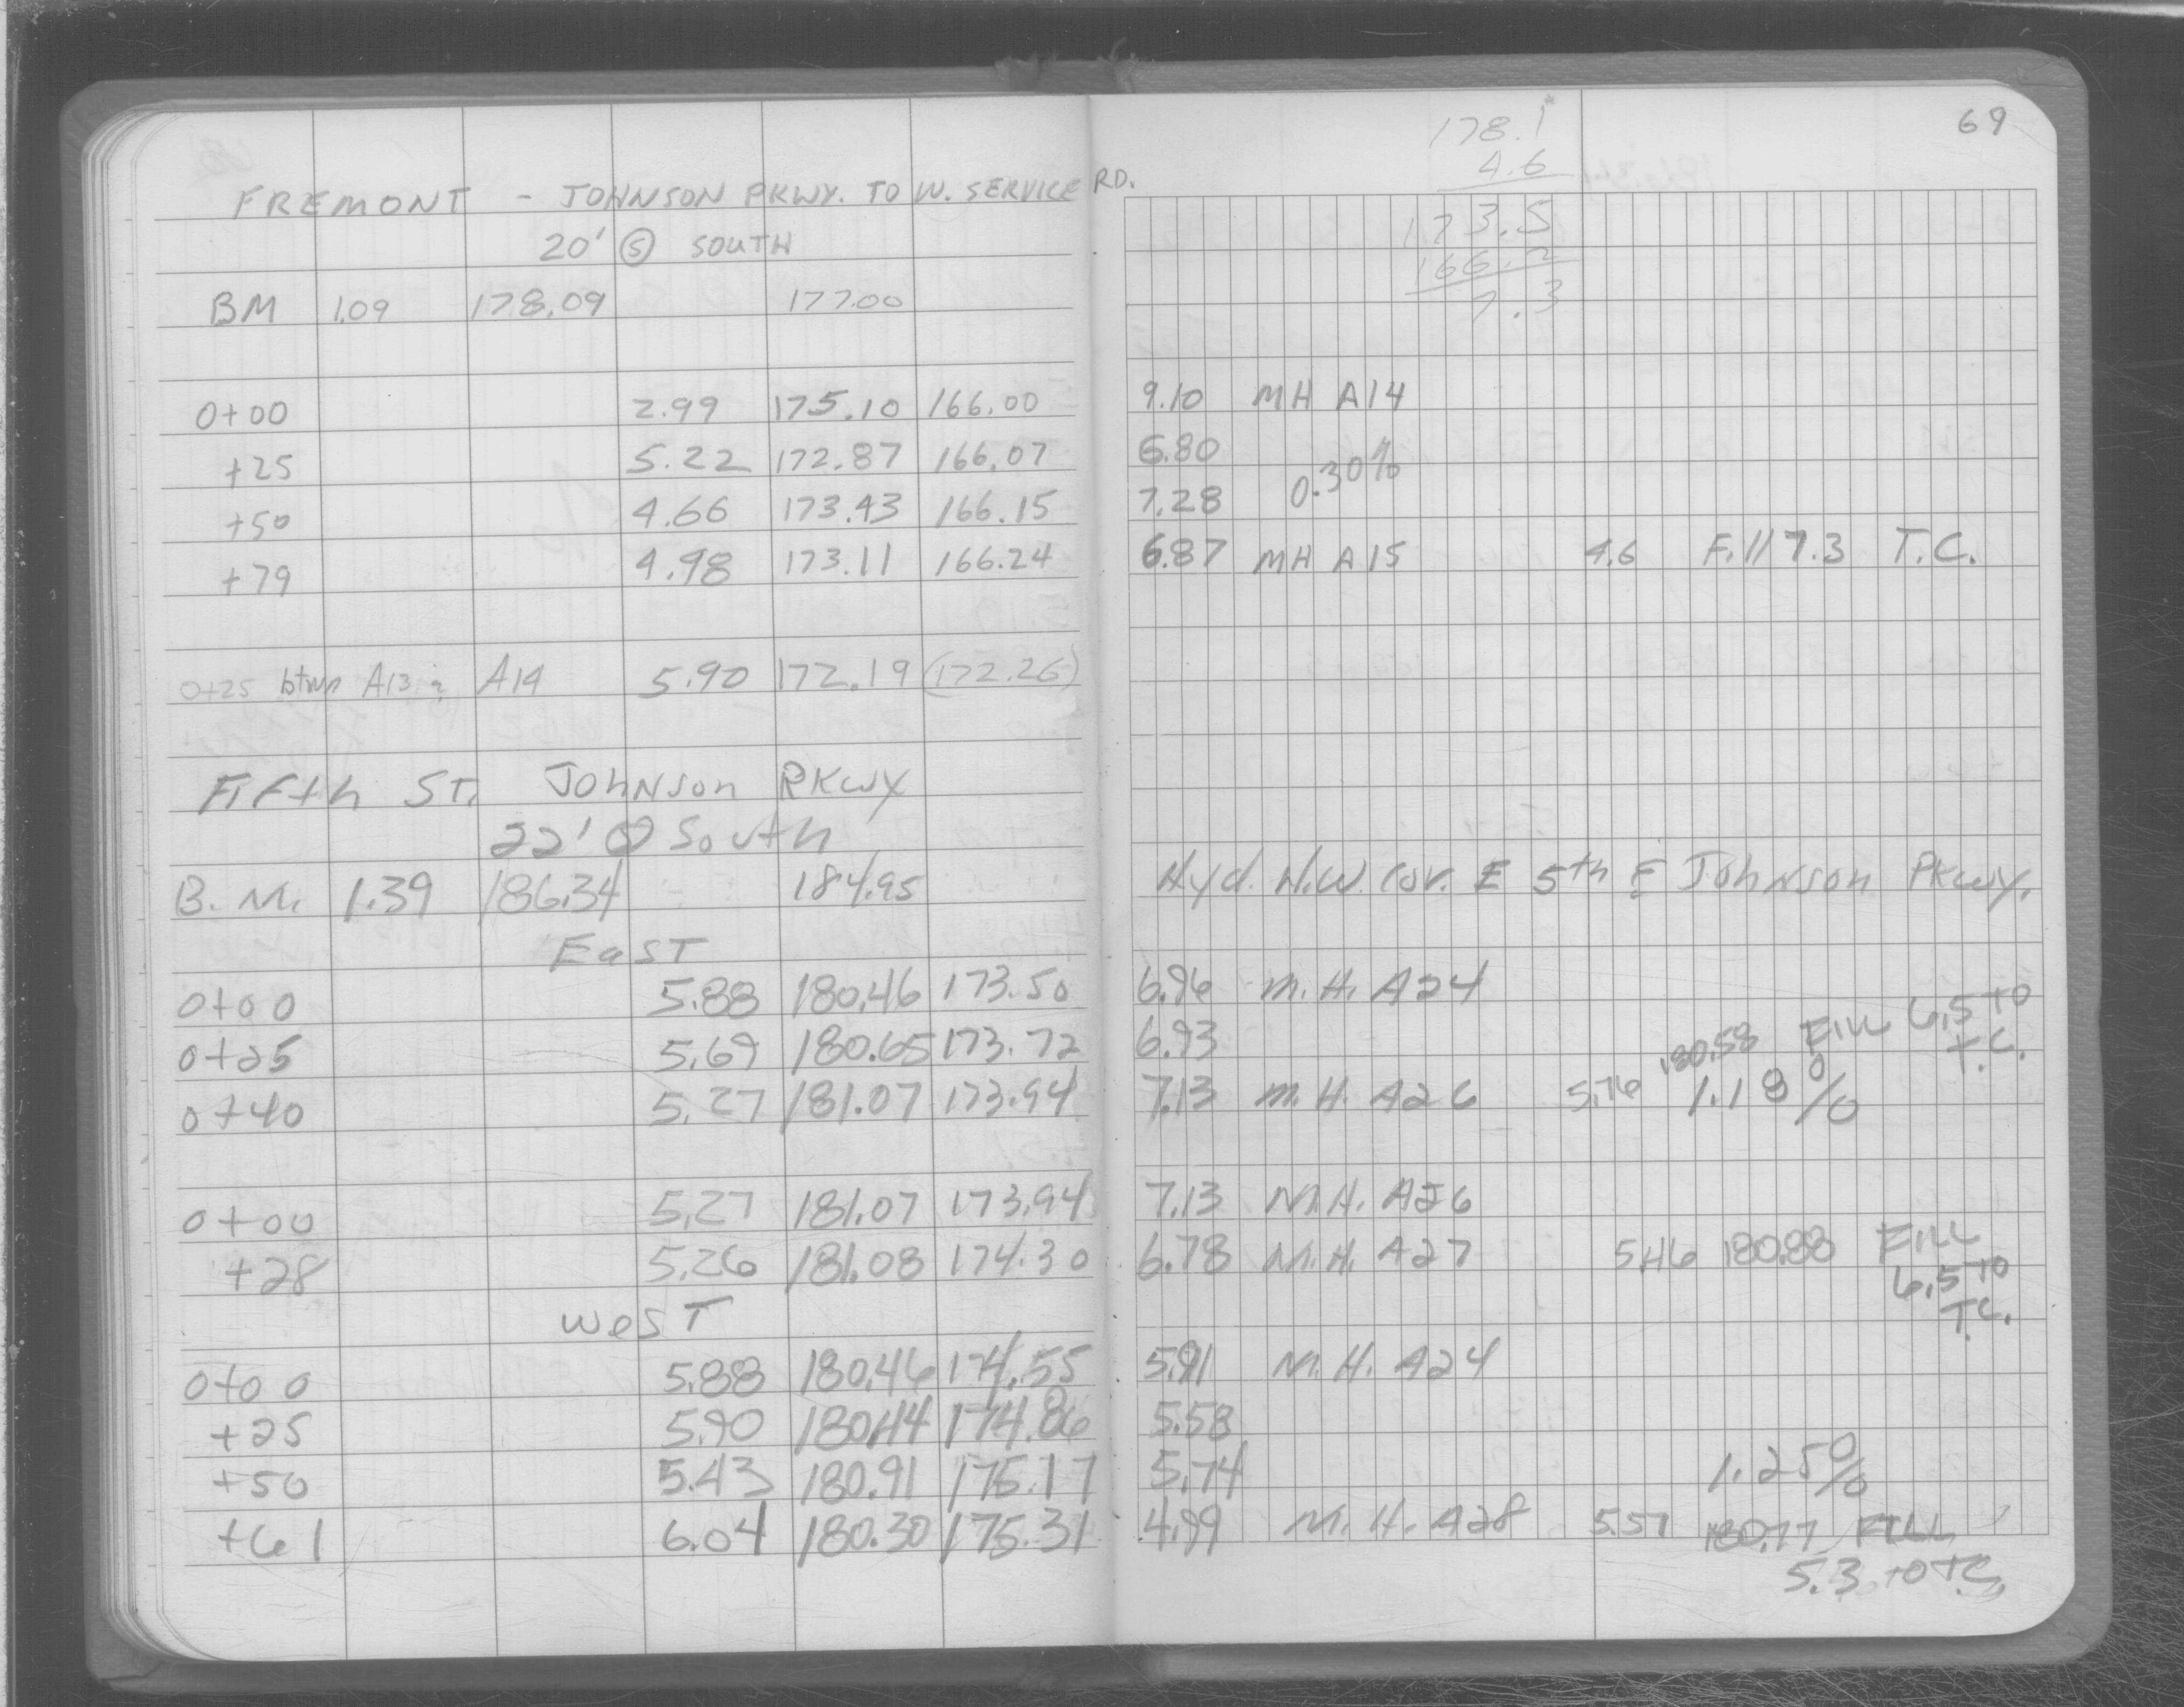 69
178.1
4.6
FREMONT - JOHNSON PKWY. TO W. SERVICE RD.
173.5
20' Ⓢ SOUTH
166.2
BM 1.09 178.09 177.00
7.3
0+00 2.99 175.10 166.00 9.10 MH A14
+25 5.22 172.87 166.07 6.80
0.30%
+50 4.66 173.43 166.15 7.28
+79 4.98 173.11 166.24 6.87 MH A15 4.6 Fill 7.3 T.C.
0+25 btwn A13 & A14 5.90 172.19 (172.26)
Fifth ST. Johnson PKWY
22' @ South
B.M. 1.39 186.34 184.95 Hyd. N.W. Cor. E 5th & Johnson Pkwy.
EAST
0+00 5.88 180.46 173.50 6.96 M.H. A24
0+25 5.69 180.65 173.72 6.93 180.58 FILL 6.5 TO T.C.
0+40 5.27 181.07 173.94 7.13 M.H. A26 5.76 1.18%
0+00 5.27 181.07 173.94 7.13 M.H. A26
+28 5.26 181.08 174.30 6.78 M.H. A27 5.46 180.88 FILL
6.5 TO
T.C.
WEST
0+00 5.88 180.46 174.55 5.91 M.H. A24
+25 5.90 180.44 174.86 5.58
+50 5.43 180.91 175.17 5.74 1.25%
+61 6.04 180.30 175.31 4.99 M.H. A28 5.57 180.77 FILL
5.3 TO T.C.